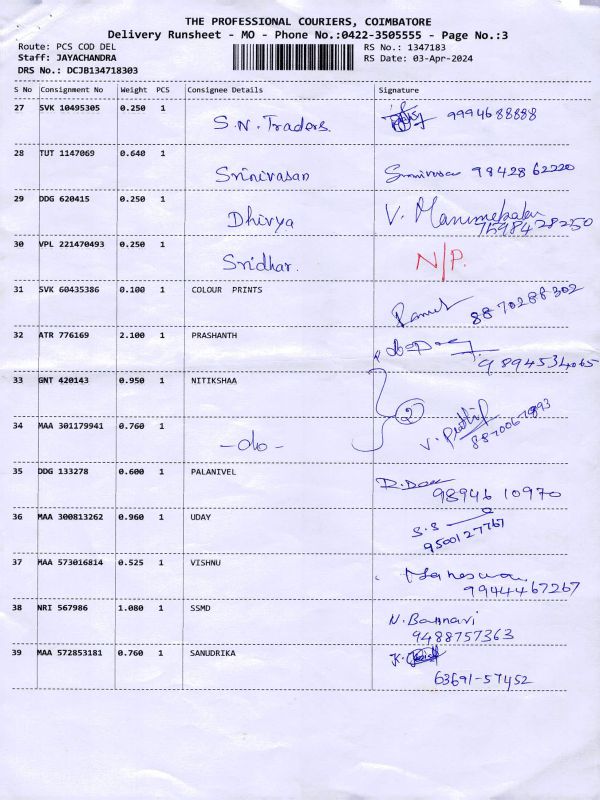 THE PROFESSIONAL COURIERS, COIMBATORE
Delivery Runsheet - MO - Phone No.:0422-3505555 - Page No.:3
Route: PCS COD DEL RS No.: 1347183
Staff: JAYACHANDRA RS Date: 03-Apr-2024
DRS No.: DCJB134718303
S No Consignment No Weight PCS Consignee Details Signature
27 SVK 10495305 0.250 1 S.N. Traders. 9994688888
28 TUT 1147069 0.640 1 Srinivasan Srinivasan 98428 62220
29 DDG 620415 0.250 1 Dhivya V. Manimekalai
7598428250
30 VPL 221470493 0.250 1 Sridhar. N/P.
31 SVK 60435386 0.100 1 COLOUR PRINTS
8870288302
32 ATR 776169 2.100 1 PRASHANTH
9894534065
33 GNT 420143 0.950 1 NITIKSHAA
2
34 MAA 301179941 0.760 1 -do- V. Prithif
35 DDG 133278 0.600 1 PALANIVEL
98946 10970
36 MAA 300813262 0.960 1 UDAY S.S
9500127767
37 MAA 573016814 0.525 1 VISHNU
9944467267
38 NRI 567986 1.080 1 SSMD N. Bannari
9488757363
39 MAA 572853181 0.760 1 SANUDRIKA K.
63691-57452